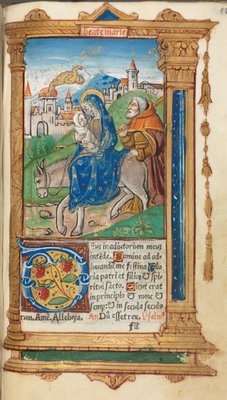 beate marie
Deus in adiutorium meū
intēde. Domine ad ad
iuuandū me festina. Glo
ria patri et filio ⁊ spi
ritui sācto. Sicut erat
in principio ⁊ nunc ⁊
semp: ⁊ in secula seculo
rum. Amē. Alleluya. Añ. Dū esset rex. Psalm⁹